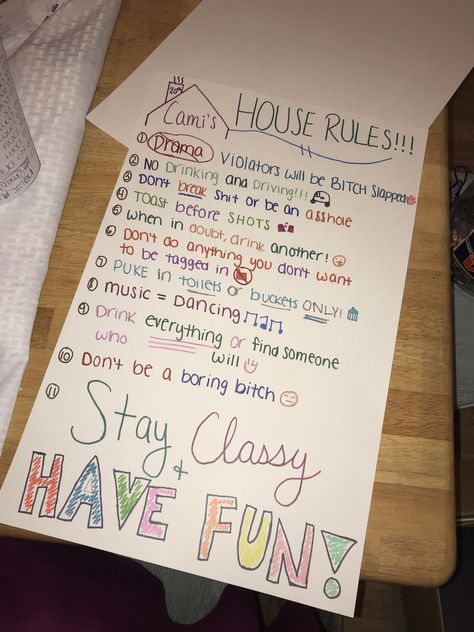 Cami's HOUSE RULES!!!
1 Drama Violators will be BITCH Slapped
2 NO Drinking and Driving!!!
3 Don't break shit or be an asshole
4 TOAST before SHOTS
5 when in doubt, drink another!
6 Don't do anything you don't want
to be tagged in
7 PUKE in toilets or buckets ONLY!
8 music = Dancing
9 Drink everything or find someone
who will
10 Don't be a boring bitch
11 Stay Classy
+
HAVE FUN!